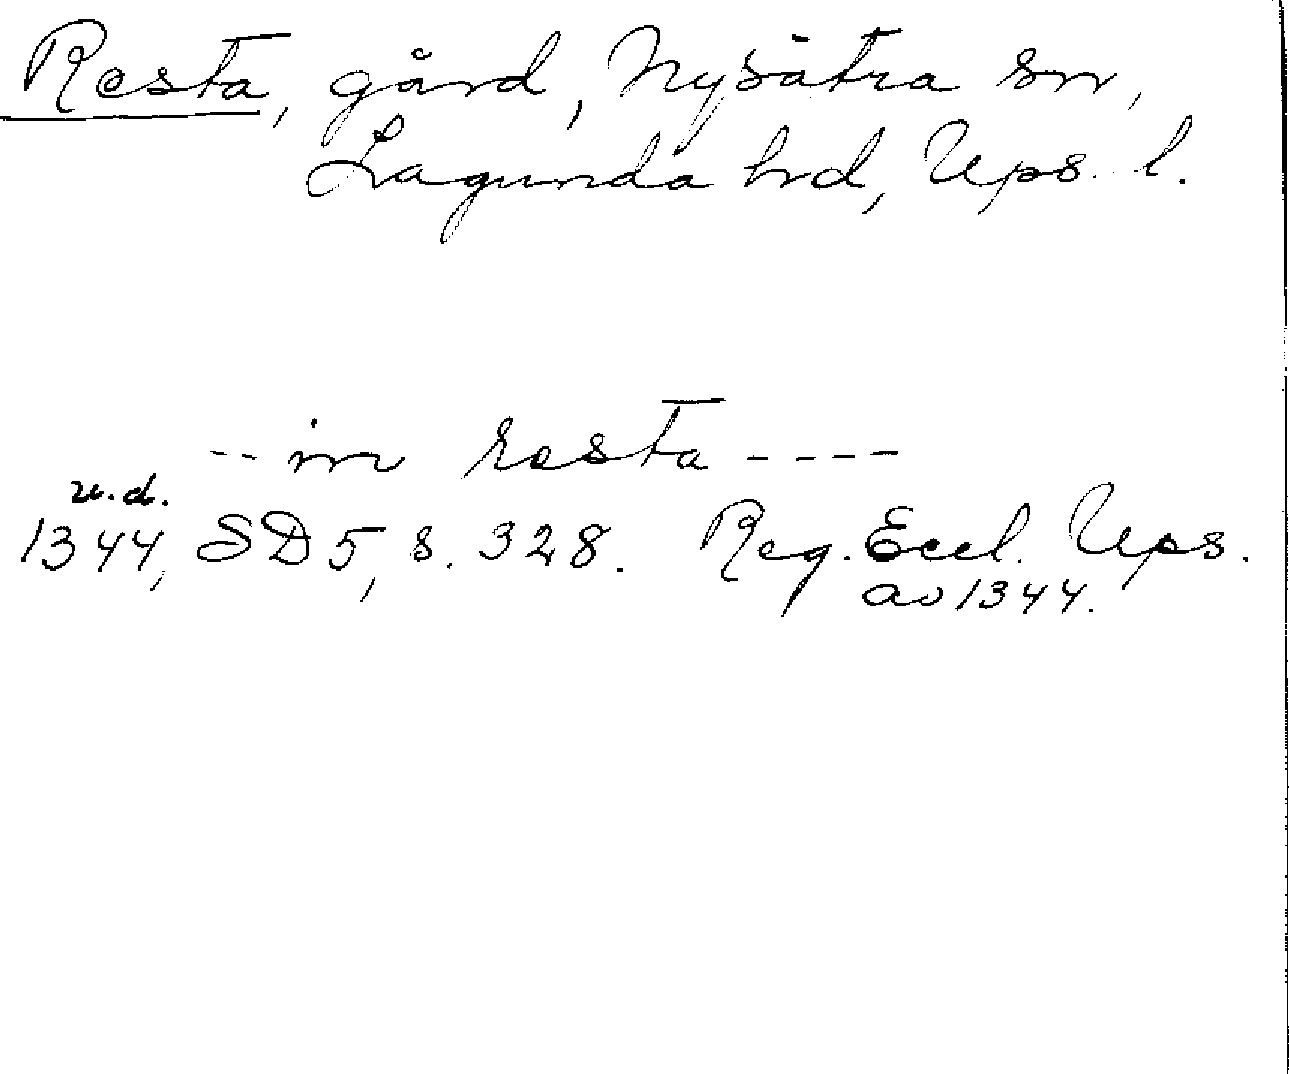 Resta, gård, Nysätra sn,
Lagunda hd, Ups. l.
-- in resta ----
u.d.
1344, SD 5, s. 328. Reg. Eccl. Ups.
av 1344.